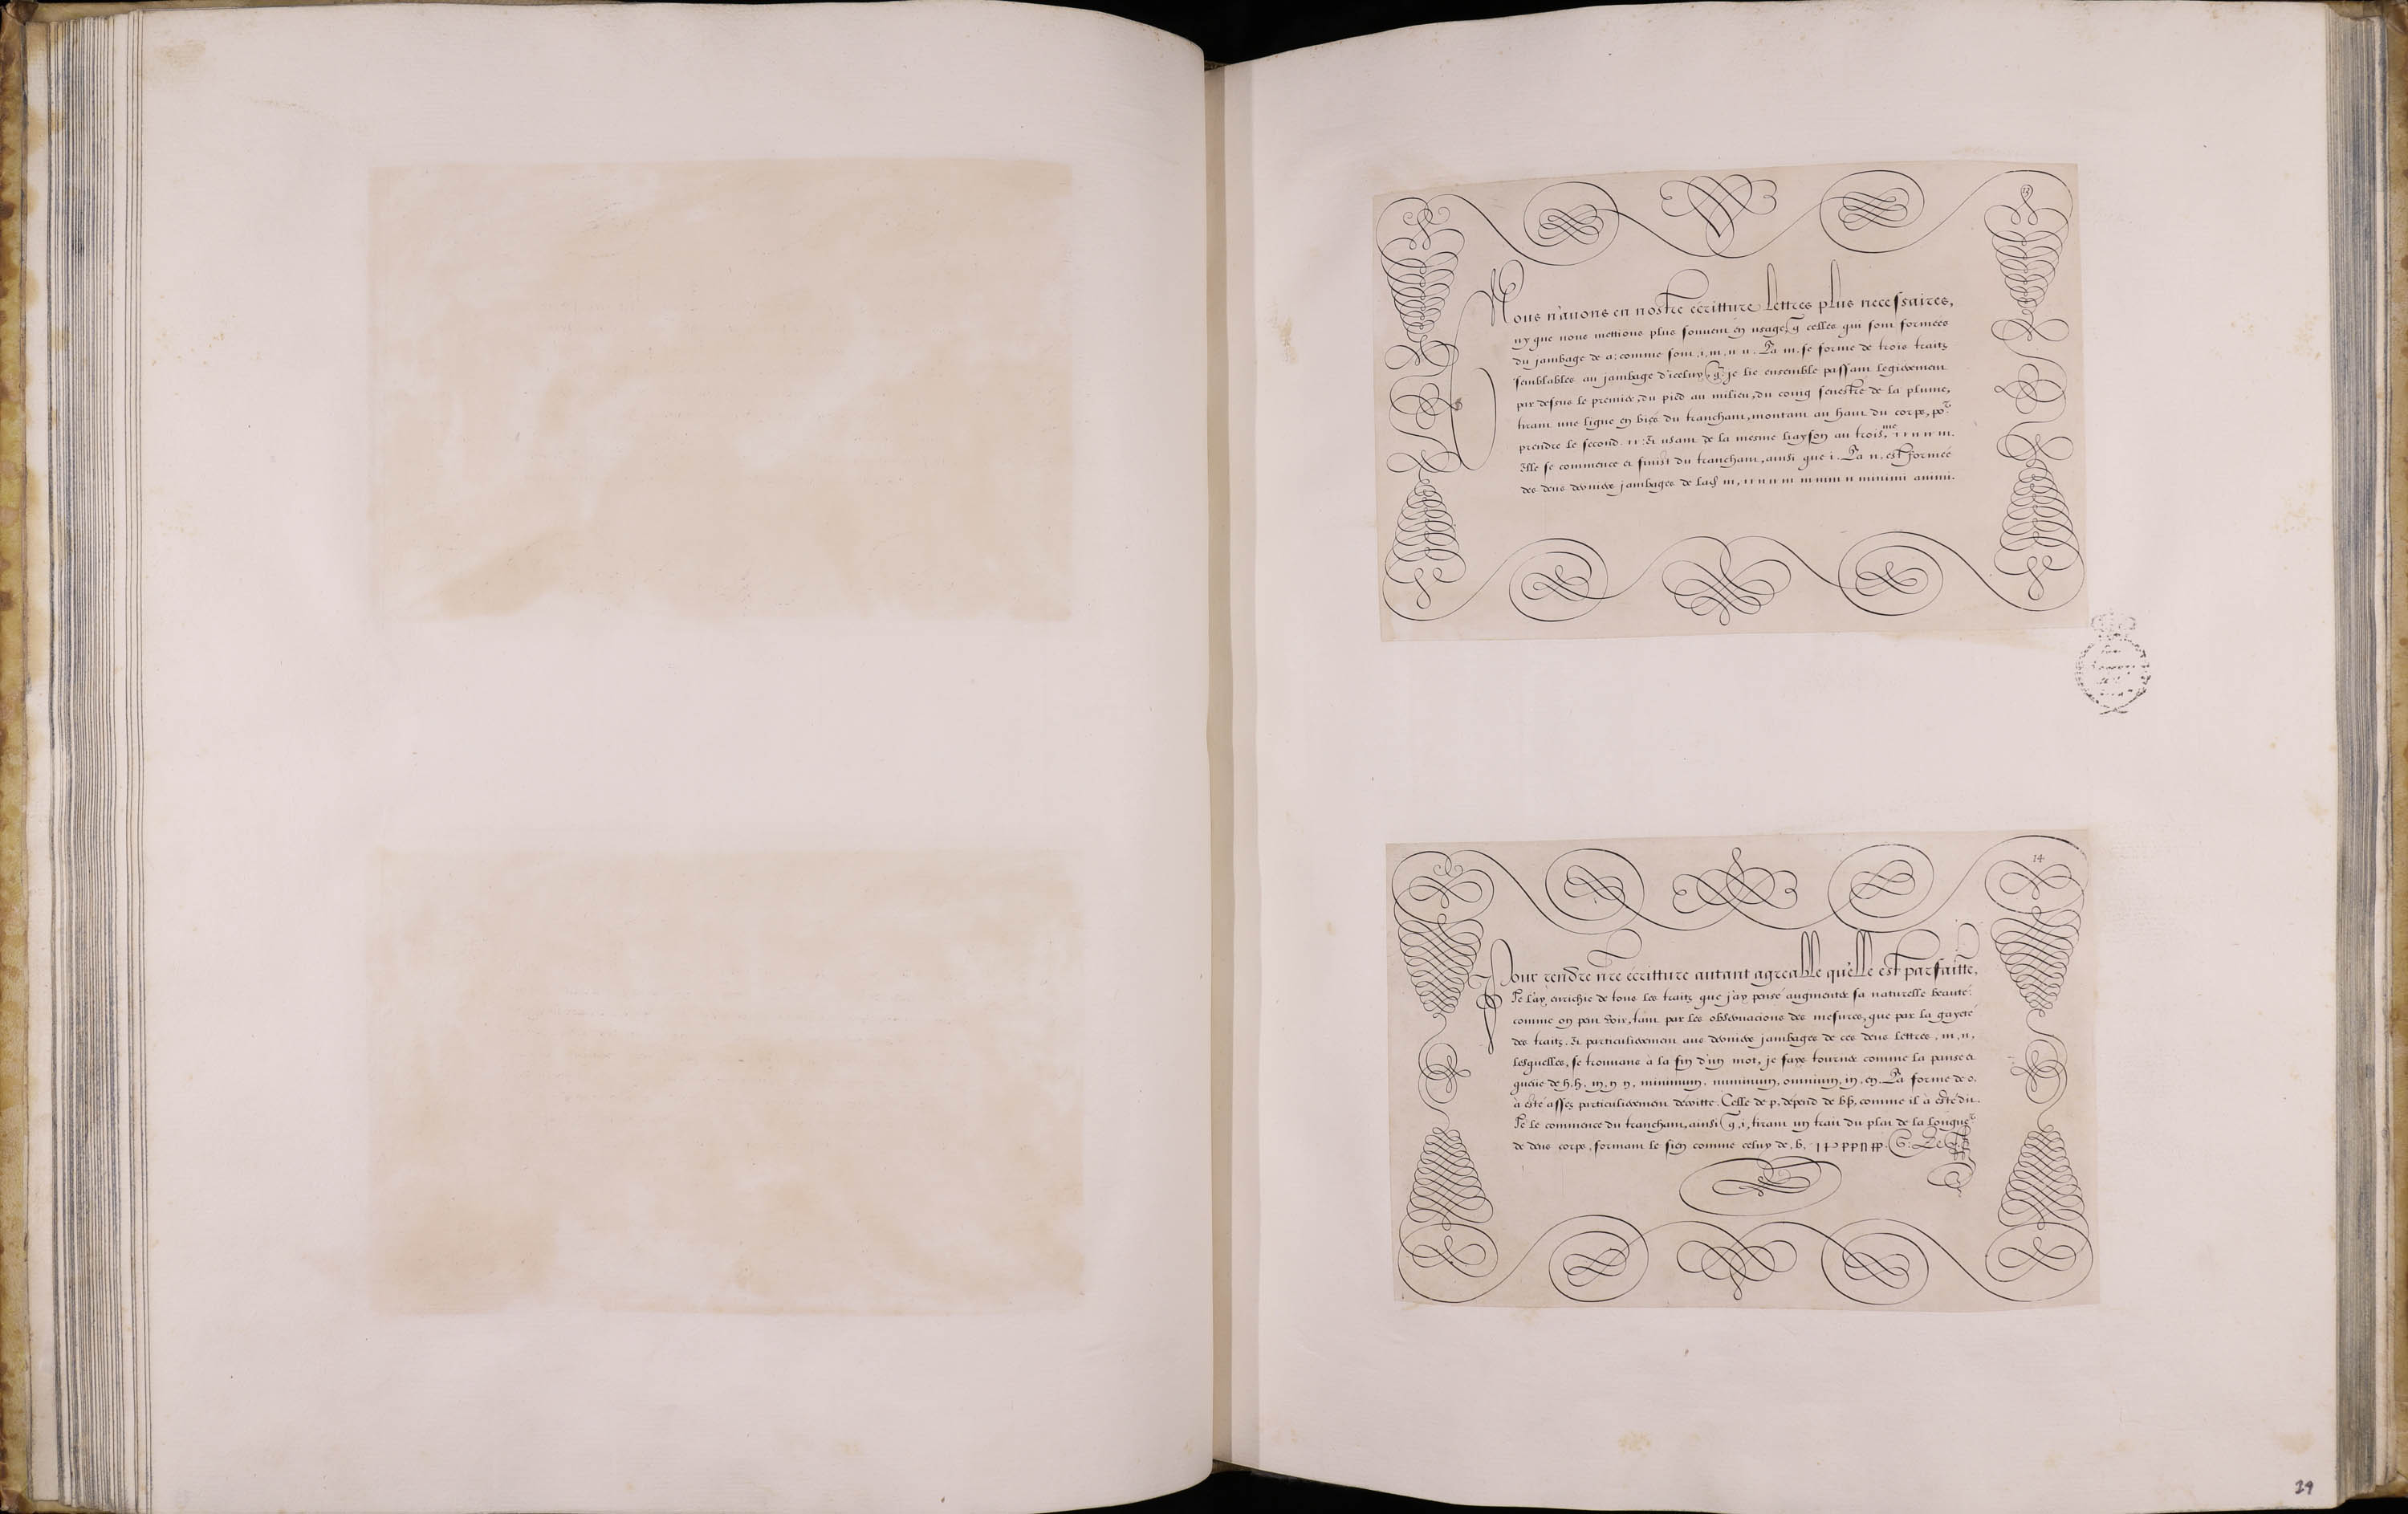 13
Nous n'auons en nostre ecritture lettres plus necessaires,
ny que nous mettions plus souuent en usage, q̃ celles qui sont formées
du jambage de a: comme sont, i, m, n u. La m, se forme de trois traits
semblables au jambage d'iceluy, q̃ je lie ensemble passant legierement
par dessus le premier, du pied au milieu, du coing senestre de la plume,
tirant une ligne en biés du tranchant, montant au haut du corps, poʳ
prendre le second. et usant de la mesme liayson au troisᵐᵉ
Elle se commence et finist du tranchant, ainsi que i. La n, est formée
des deus derniers jambages de lad m, minimi animi.
14
Pour rendre nr̃e écritture autant agreable qu'elle est parfaitte,
Je l'ay enrichie de tous les traits que j'ay pensé augmenter sa naturelle beauté:
comme on peut voir, tant par les observacions des mesures, que par la gayeté
des traits. Et particulierement aus derniers jambages de ces deus lettres, m, n,
lesquelles, se trouuans à la fin d'un mot, je fays tourner comme la panse et
queüe de h. h, m, n n, minimum, numinum, omnium, in, en. La forme de o.
à esté assez particulierement décritte. Celle de p, dépend de b b, comme il à esté dit.
Je le commence du tranchant, ainsi q̃, i, tirant un trait du plat de la longueʳ
de deus corps, formant le sien comme celuy de, b,
29